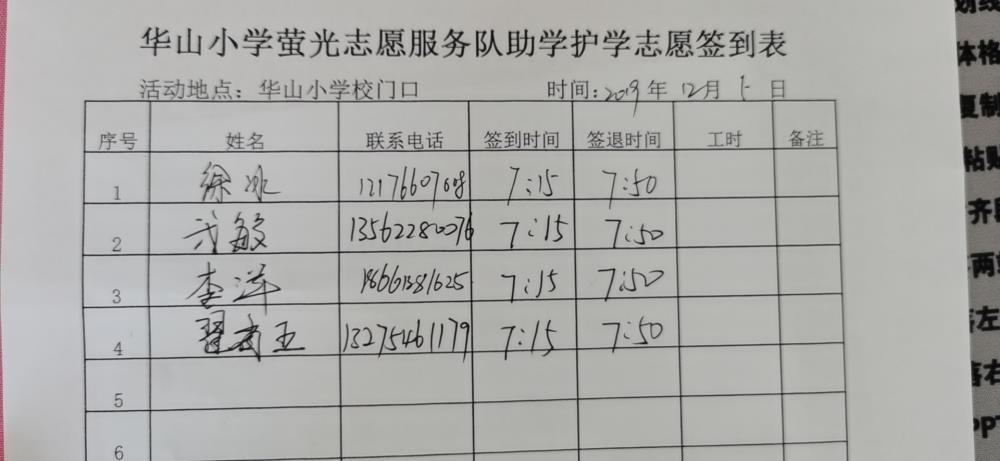 华山小学萤光志愿服务队助学护学志愿签到表
活动地点：华山小学校门口 时间：2019年 12月 5 日
序号 姓名 联系电话 签到时间 签退时间 工时 备注
1 徐冰 7:15 7:50
2 敏 13562280076 7:15 7:50
3 李洋 18661381625 7:15 7:50
4 玉 13275461179 7:15 7:50
5
6
划线
体格
复制
粘贴
齐
两
左
右
PPT